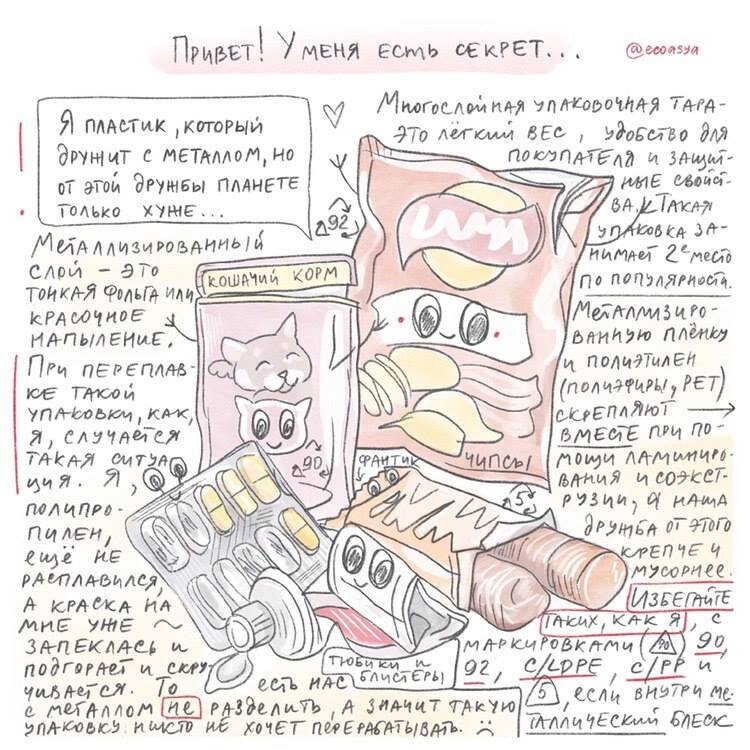 Привет! У меня есть секрет...
@ecoasya
Я пластик, который
дружит с металлом, но
от этой дружбы планете
только хуже...
Многослойная упаковочная тара-
это лёгкий вес, удобство для
покупателя и защит-
ные свойст-
ва. Такая
упаковка за-
нимает 2е место
по популярности.
Металлизиро-
ванную плёнку
и полиэтилен
(полиэфиры, PET)
скрепляют →
вместе при по-
мощи ламиниро-
вания и соэкст-
рузии, а наша
дружба от этого
крепче и
мусорнее.
Избегайте
таких, как я, с
маркировками 90 90,
92, C/LDPE, C/PP и
5, если внутри ме-
таллический блеск
Металлизированный
слой - это
тонкая фольга или
красочное
напыление.
При переплав-
ке такой
упаковки, как,
я, случается
такая ситуа-
ция. Я,
полипро-
пилен,
ещё не
расплавился,
а краска на
мне уже ~
запеклась и
подгорает и скру-
чивается. То
есть нас
с металлом не разделить, а значит такую
упаковку никто не хочет перерабатывать.
92
Кошачий корм
90
фантик
чипсы
5
тюбики и
блистеры